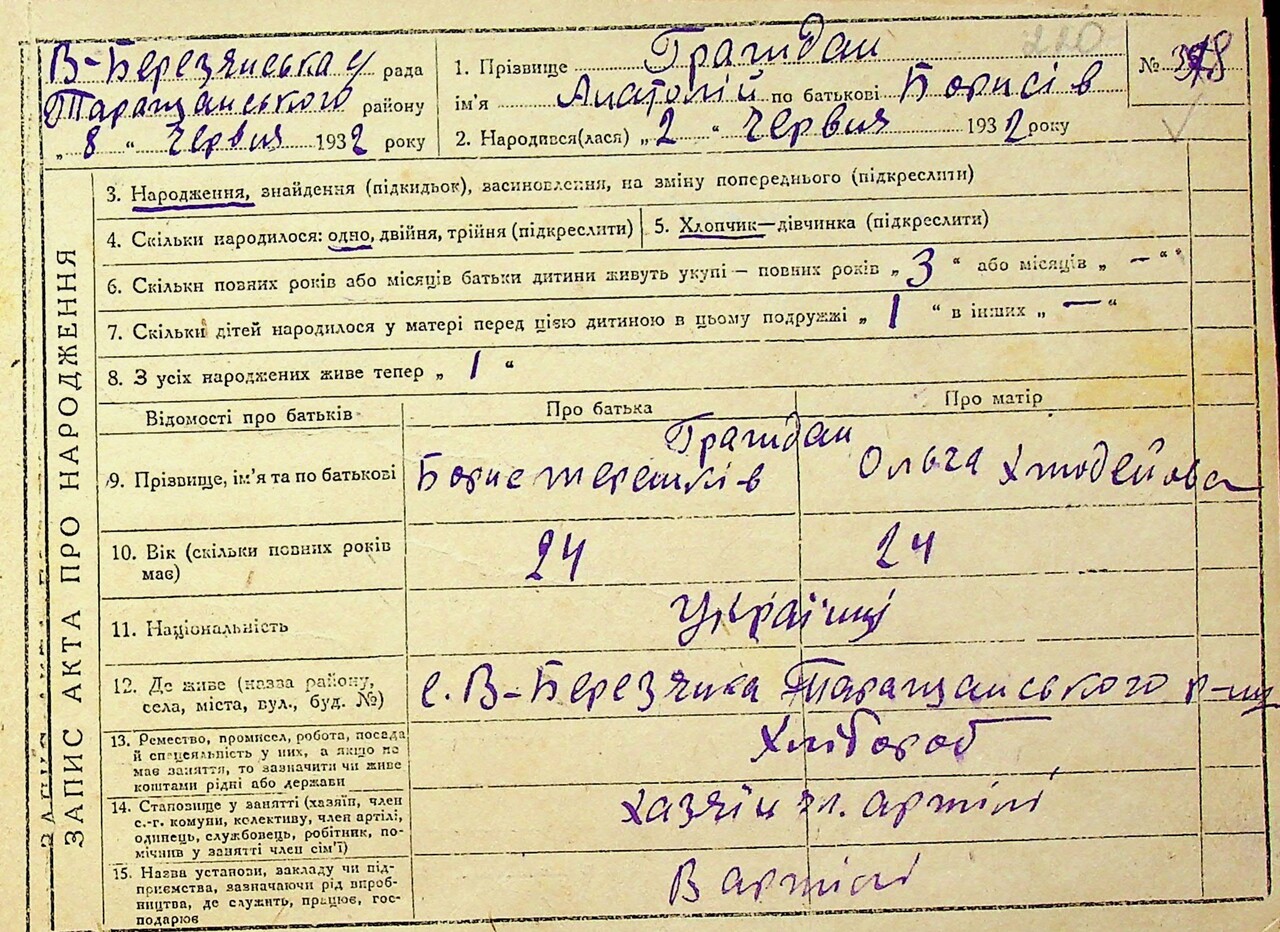 В-Березянська у рада
Таращанського району
„ 8 “ Червня 1932 року
1. Прізвище Грагидан
ім'я Анатолій по батькові Борисів
2. Народився(лася) „ 2 “ Червня 1932 року
210
№
ЗАПИС АКТА ПРО НАРОДЖЕННЯ
3. Народження, знайдення (підкидьок), засиновлення, на зміну попереднього (підкреслити)
4. Скільки народилося: одно, двійня, трійня (підкреслити)
5. Хлопчик—дівчинка (підкреслити)
6. Скільки повних років або місяців батьки дитини живуть укупі — повних років „ 3 “ або місяців „ — “
7. Скільки дітей народилося у матері перед цією дитиною в цьому подружжі „ 1 “ в інших „ — “
8. З усіх народжених живе тепер „ 1 “
Відомості про батьків
Про батька
Про матір
9. Прізвище, ім'я та по батькові
Грагидан
Борис Терешків
Ольга
10. Вік (скільки повних років
має)
24
24
11. Національність
Українці
12. Де живе (назва району,
села, міста, вул., буд. №)
с. В-Березянка Таращанського р-ну
13. Ремество, промисел, робота, посада
й спеціяльність у них, а якщо не
має заняття, то зазначити чи живе
коштами рідні або держави
Хлібороб
14. Становище у занятті (хазяїн, член
с.-г. комуни, колективу, член артілі,
одинець, службовець, робітник, по-
мічник у занятті член сім'ї)
Хазяїн чл. артілі
15. Назва установи, закладу чи під-
приємства, зазначаючи рід вироб-
ництва, де служить, працює, гос-
подарює
В артілі